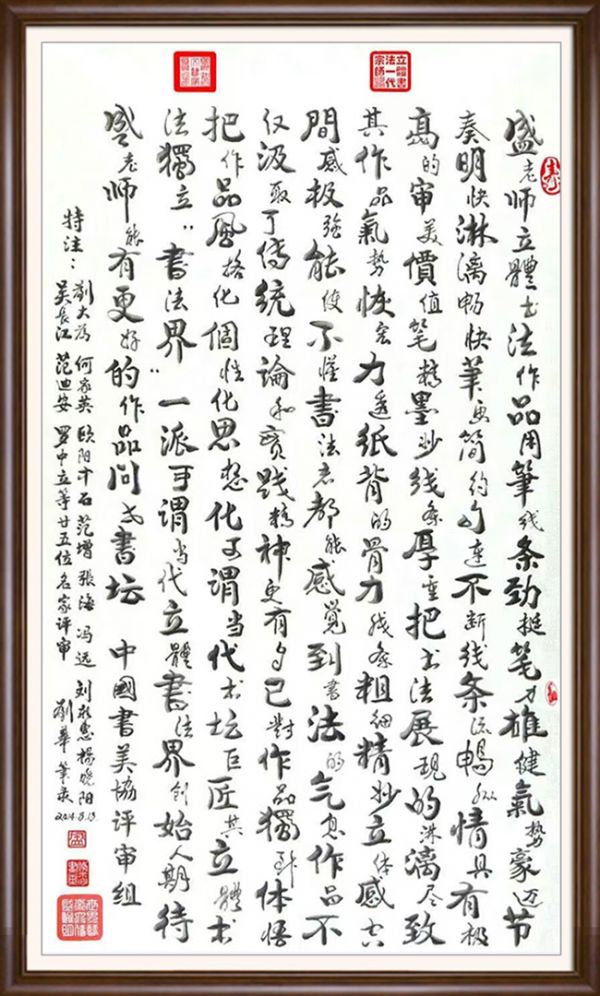 立體書法一代宗師
盛老师立體书法作品用筆线条劲挺笔力雄健氣势豪迈节
奏明快淋漓畅快筆更简约白連不断线条流暢纵情具有极
高的审美價值笔精墨妙线条厚重把书法展现的淋漓尽致
其作品氣势恢宏力透纸背的骨力线条粗细精妙立体感
間感极强能使不懂書法者都能感觉到書法的气息作品不
仅汲取了传统理論和实践精神更有自己對作品獨到体悟
把作品風格化個性化思想化可谓当代书坛巨匠其立體书
法獨立"書法界"一派可谓当代立體書法界创始人期待
盛老师能有更好的作品问世書坛 中國書美協评審组
特注：劉大为 何家英 欧阳中石 范增 張海 冯远 刘 楊晓阳
吴長江 范迪安 罗中立等廿五位名家评审 劉華筆录
2014.8.13